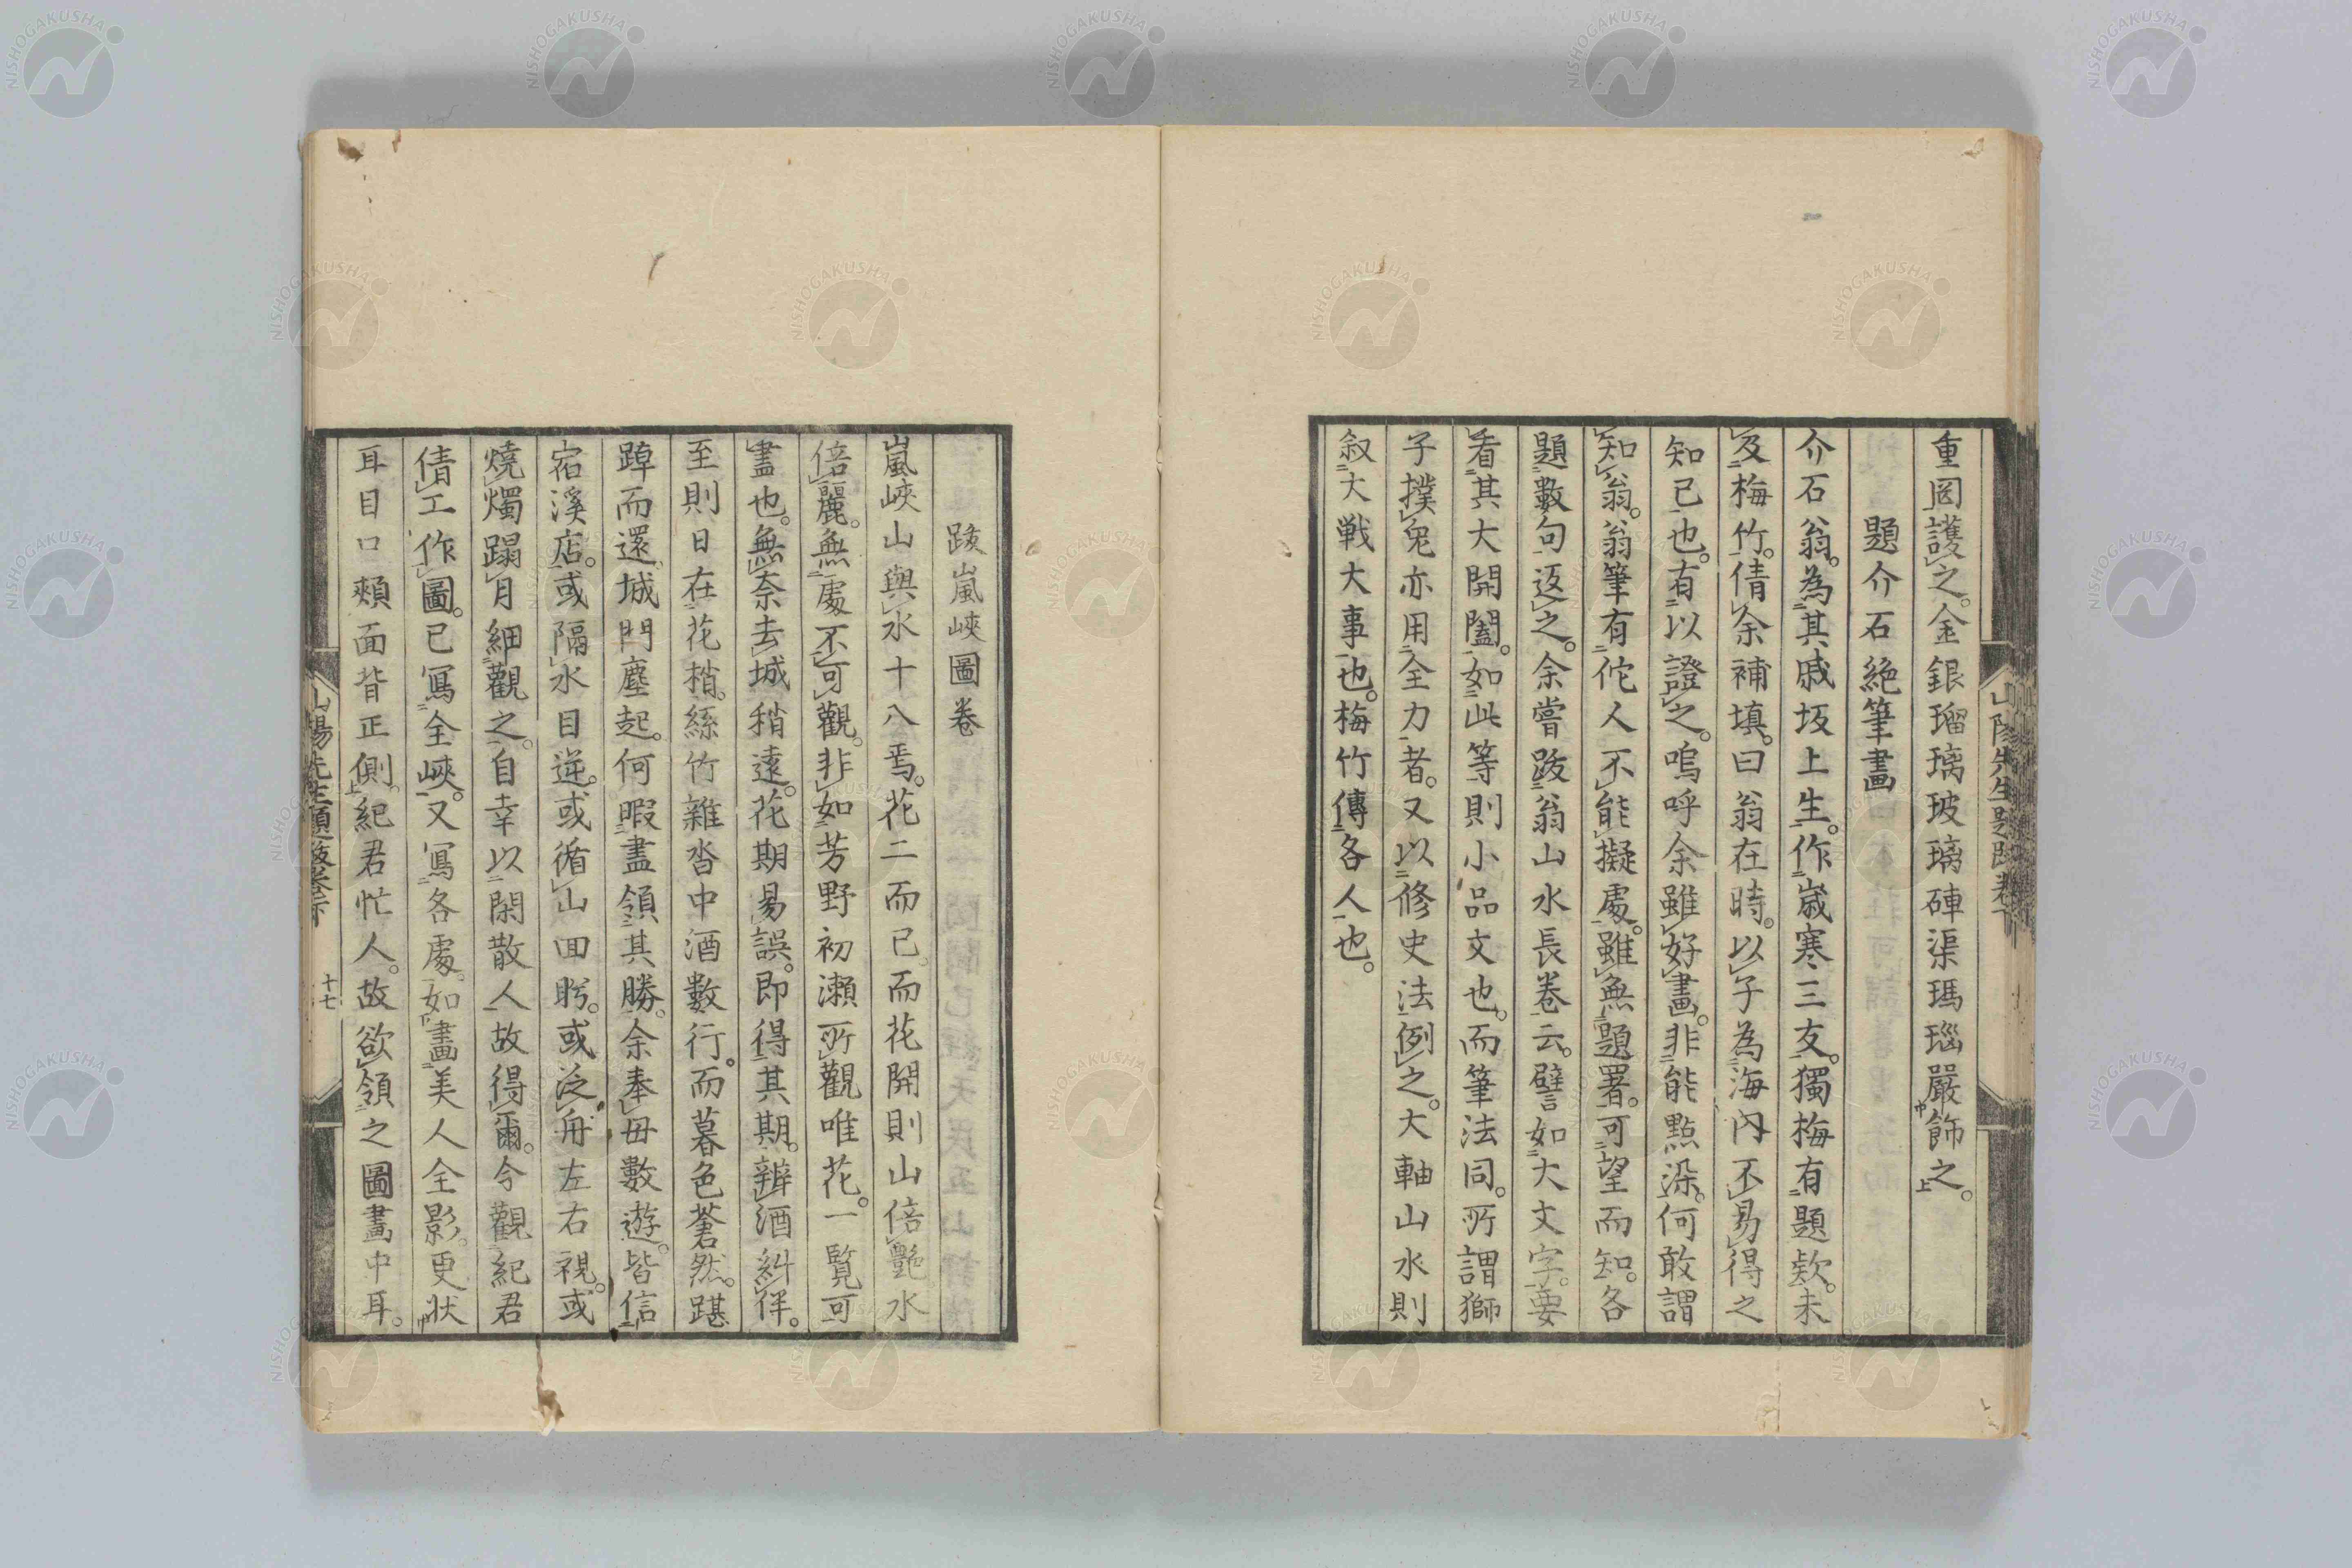 重図護之。金銀瑠璃玻璃硨渠瑪瑙嚴飾之。
題介石絶筆畫
介石翁。為其戚坂上生。作歳寒三友。獨梅有題欵。未
及梅竹。倩余補填。曰翁在時。以子為海内不易得之
知己也。有以證之。嗚呼余雖好畫。非能點染。何敢謂
知翁。翁筆有佗人不能擬處。雖無題署。可望而知。各
題數句返之。余嘗跋翁山水長卷云。譬如大文字。要
看其大開闔。如此等則小品文也。而筆法同。所謂獅
子撲兔亦用全力者。又以修史法例之。大軸山水則
叙大戦大事也。梅竹傳各人也。
山陽先生題跋卷下
跋嵐峽圖卷
嵐峽山與水十八焉。花二而已。而花開則山倍艷水
倍麗。無處不可觀。非如芳野初瀬所觀唯花。一覧可
盡也。無奈去城稍遠。花期易誤。即得其期。辦酒糾伴。
至則日在花梢。絲竹雜沓中酒數行。而暮色蒼然。踸
踔而還。城門塵起。何暇盡領其勝。余奉母數遊。皆信
宿溪店。或隔水目逆。或循山回眄。或泛舟左右視。或
燒燭蹋月細觀之。自幸以閑散人故得爾。今觀紀君
倩工作圖。已寫全峽。又寫各處。如畫美人全影。更状
耳目口頰面背正側。紀君忙人。故欲領之圖畫中耳。
山陽先生題跋卷下
十七
NISHOGAKUSHA